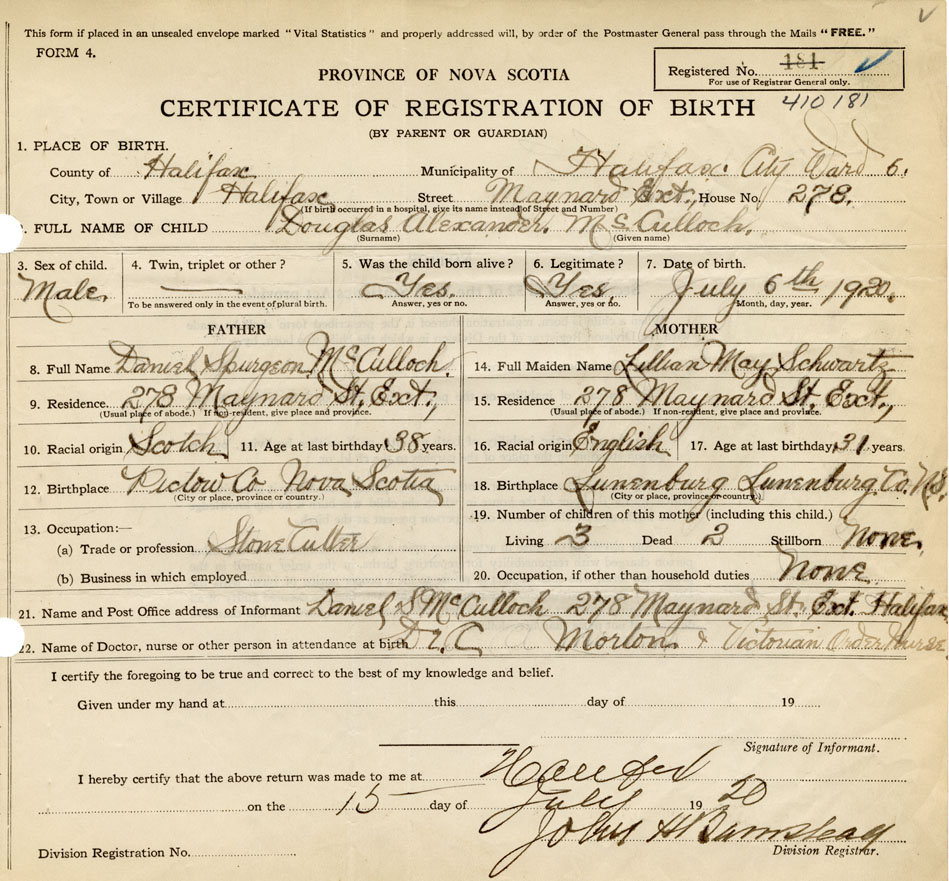 This form if placed in an unsealed envelope marked "Vital Statistics" and properly addressed will, by order of the Postmaster General pass through the Mails "FREE."
FORM 4.
Registered No. 181
For use of Registrar General only.
PROVINCE OF NOVA SCOTIA
CERTIFICATE OF REGISTRATION OF BIRTH 410181
(BY PARENT OR GUARDIAN)
1. PLACE OF BIRTH.
County of Halifax Municipality of Halifax City Ward 6.
City, Town or Village Halifax Street Maynard Ext., House No. 278.
(If birth occurred in a hospital, give its name instead of Street and Number)
2. FULL NAME OF CHILD Douglas Alexander. McCulloch.
(Surname) (Given name)
3. Sex of child. 4. Twin, triplet or other? 5. Was the child born alive? 6. Legitimate? 7. Date of birth.
Male. Yes. Yes. July 6th 1920.
To be answered only in the event of plural birth. Answer, yes or no. Answer, yes or no. Month, day, year.
FATHER MOTHER
8. Full Name Daniel Spurgeon McCulloch. 14. Full Maiden Name Lillian May Schwartz
9. Residence. 278 Maynard St, Ext., 15. Residence 278 Maynard St. Ext.,
(Usual place of abode.) If non-resident, give place and province. (Usual place of abode.) If non-resident, give place and province.
10. Racial origin Scotch 11. Age at last birthday 38 years. 16. Racial origin English 17. Age at last birthday 31 years.
12. Birthplace Pictow Co Nova Scotia 18. Birthplace Lunenburg Lunenburg. Co. N.S
(City or place, province or country.) (City or place, province or country.)
13. Occupation:— 19. Number of children of this mother (including this child.)
(a) Trade or profession Stone Cutter Living 3 Dead 2 Stillborn None.
(b) Business in which employed 20. Occupation, if other than household duties None.
21. Name and Post Office address of Informant Daniel S McCulloch 278 Maynard St. Ext. Halifax
22. Name of Doctor, nurse or other person in attendance at birth Dr. C A Morton & Victorian Order Nurse
I certify the foregoing to be true and correct to the best of my knowledge and belief.
Given under my hand at this day of 19
Signature of Informant.
I hereby certify that the above return was made to me at Halifax
on the 15 day of July 19 20
John H
Division Registration No. Division Registrar.